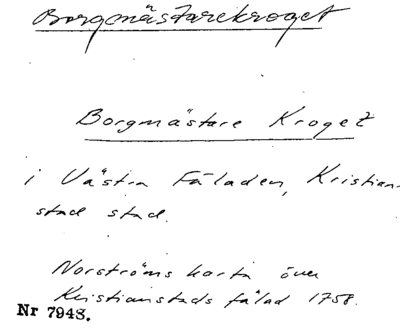 Borgmästarekroget
Borgmästare Kroget
i Västra Fäladen, Kristian-
stad stad.
Norströms karta över
Kristianstads fälad 1758.
Nr 7948.